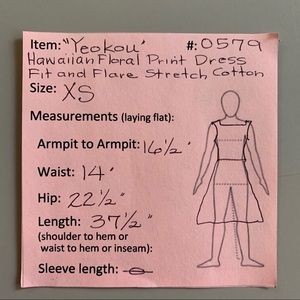 Item: "Yeokou" #: 0579
Hawaiian Floral Print Dress
Fit and Flare Stretch Cotton
Size: XS
Measurements (laying flat):
Armpit to Armpit: 16½"
Waist: 14"
Hip: 22½"
Length: 37½"
(shoulder to hem or
waist to hem or inseam):
Sleeve length: ⊖